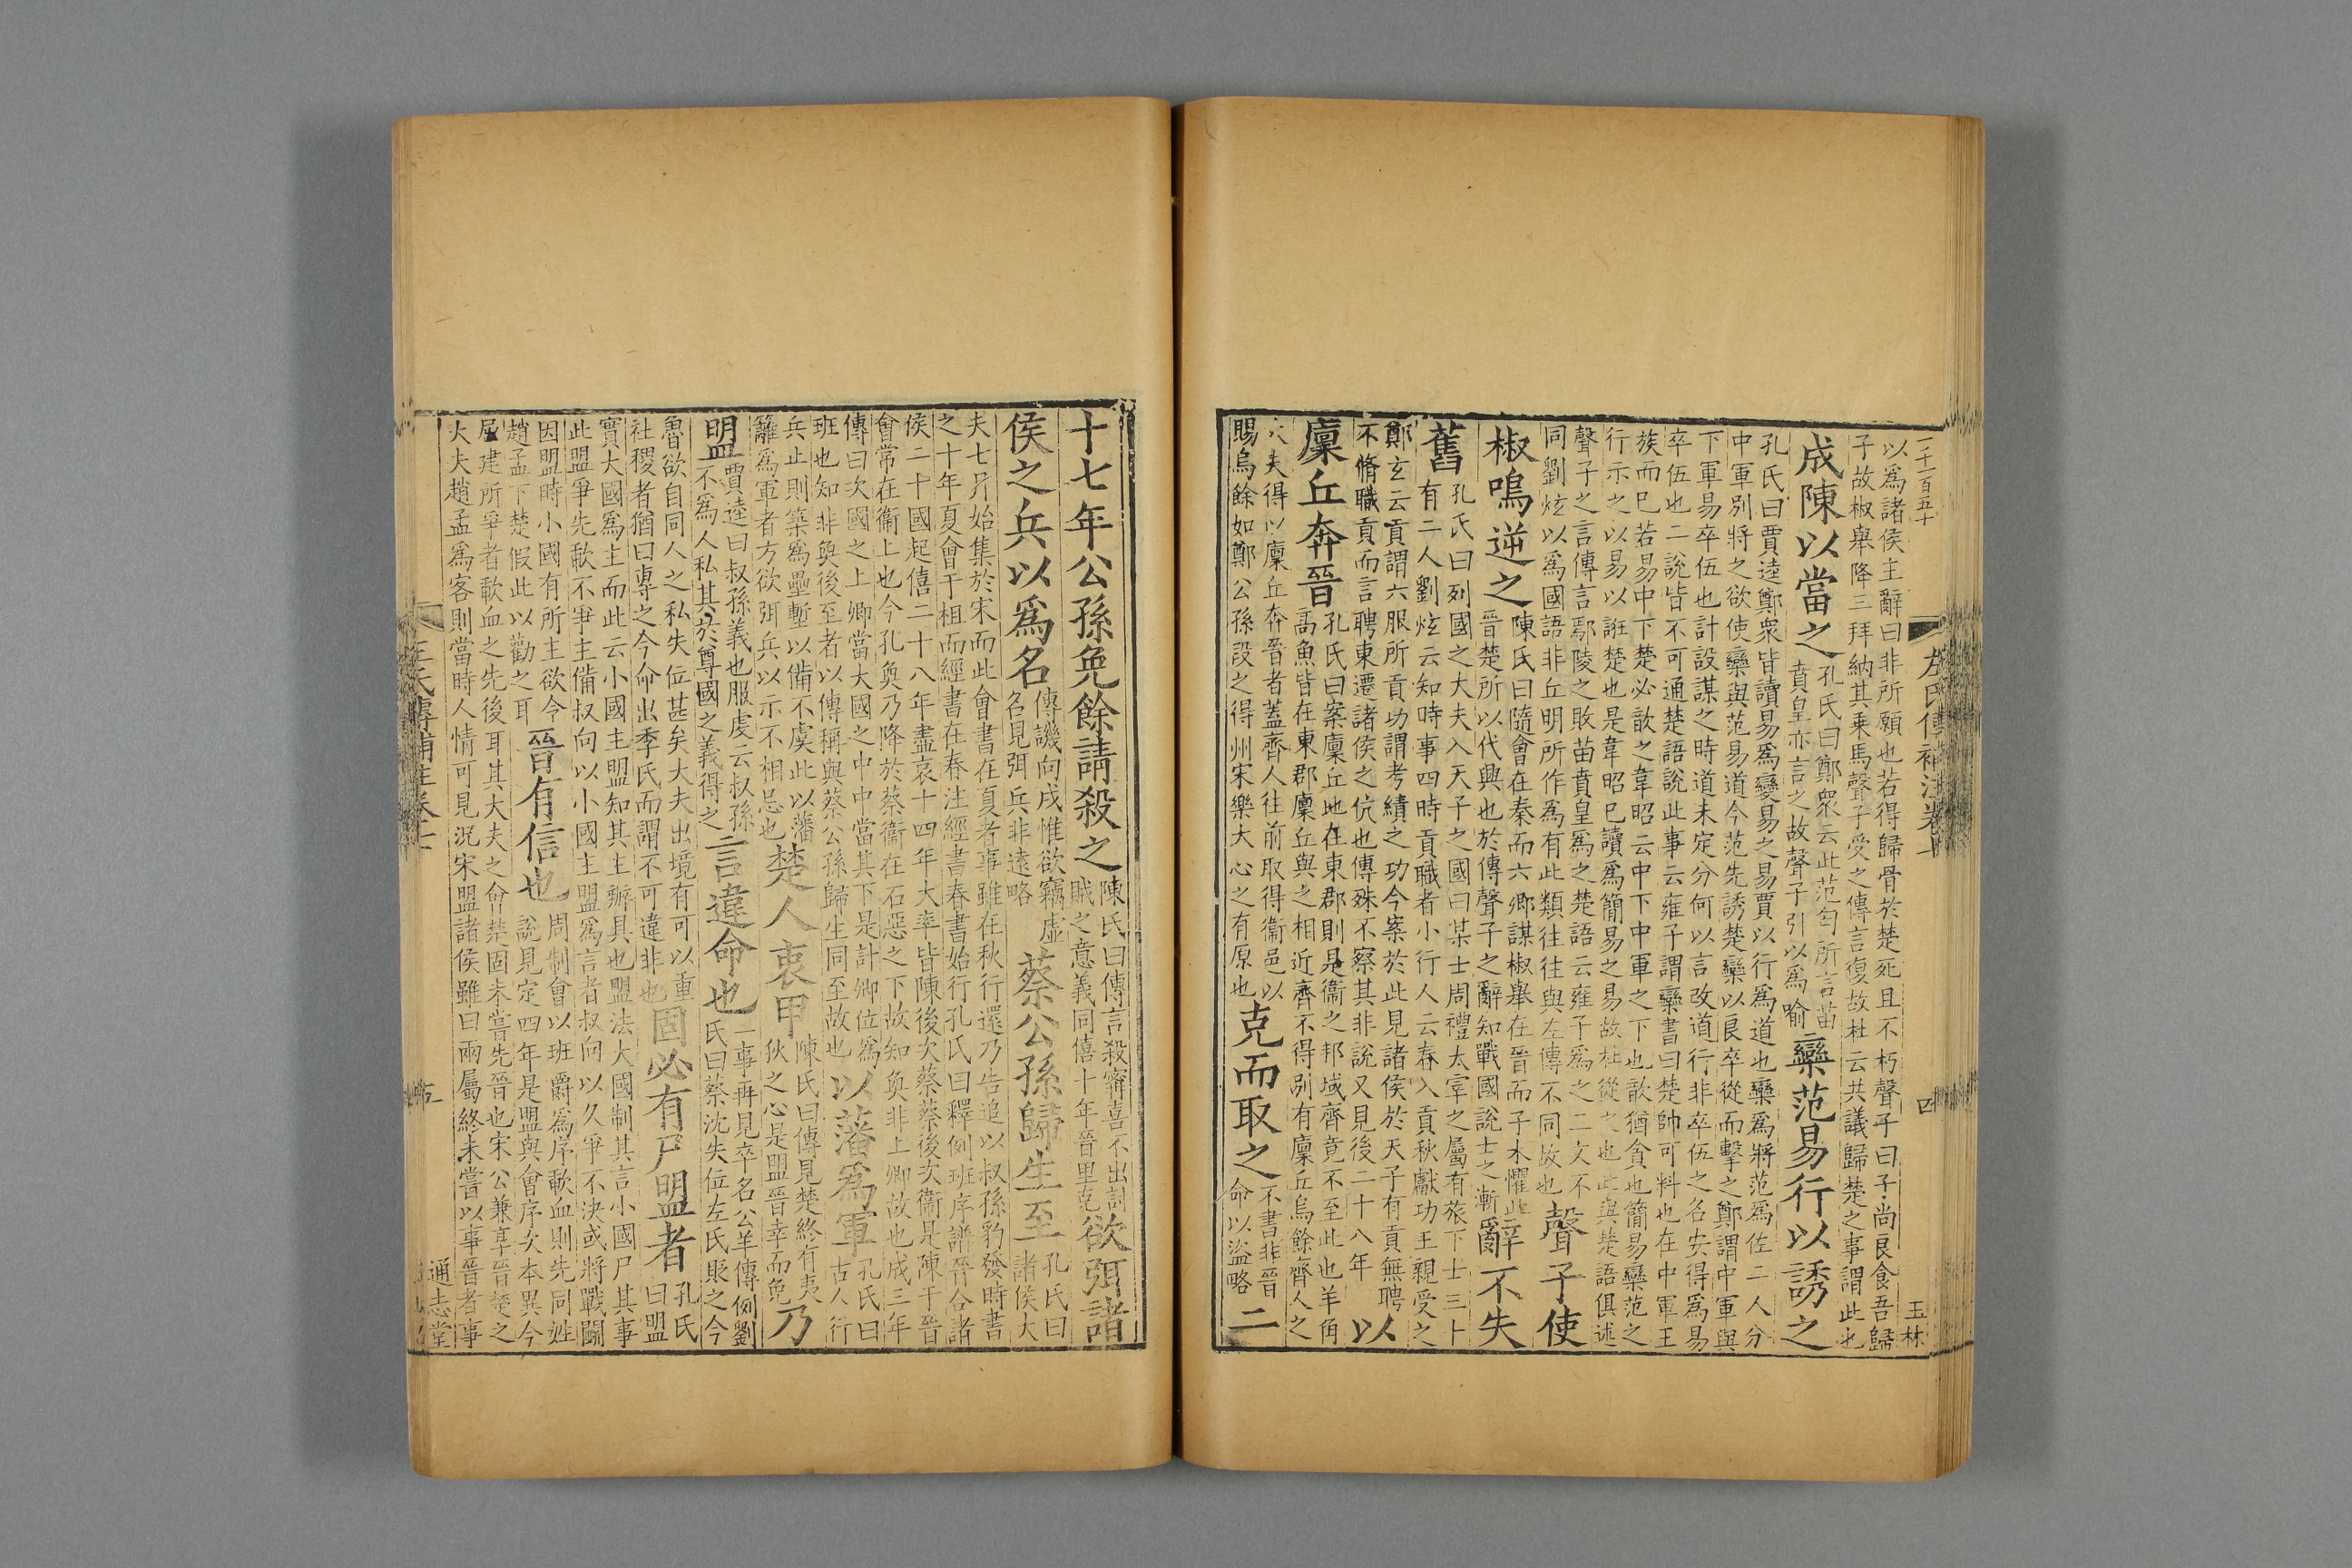 以爲諸侯主辭曰非所願也若得歸骨於楚死且不朽聲子曰子尚良食吾歸
子故椒舉降三拜納其乘馬聲子受之傳言復故杜云共議歸楚之事謂此也
成陳以當之孔氏曰鄭衆云此范匄所言苗
賁皇亦言之故聲子引以爲喻欒范易行以誘之
孔氏曰賈逵鄭衆皆讀易爲變易之易賈以行爲道也欒爲將范爲佐二人分
中軍別將之欲使欒與范易道令范先誘楚欒以良卒從而擊之鄭謂中軍與
下軍易卒伍也計設謀之時道未定分何以言改道行非卒伍之名安得爲易
卒伍也二說皆不可通楚語說此事云雍子謂欒書曰楚師可料也在中軍王
族而已若易中下楚必歆之韋昭云中下中軍之下也歆猶貪也簡易欒范之
行示之以易以誑楚也是韋昭已讀爲簡易之易故杜從之也此與楚語俱述
聲子之言傳言鄢陵之敗苗賁皇爲之楚語云雍子爲之二文不
同劉炫以爲國語非丘明所作爲有此類往往與左傳不同故也聲子使
椒鳴逆之陳氏曰隨會在秦而六卿謀椒舉在晉而子木懼此
晉楚所以代興也於傳聲子之辭知戰國說士之漸辭不失
舊孔氏曰列國之大夫入天子之國曰某士周禮太宰之屬有旅下士三十
有二人劉炫云知時事四時貢職者小行人云春入貢秋獻功王親受之
鄭玄云貢謂六服所貢功謂考績之功今案於此見諸侯於天子有貢無聘
不脩職貢而言聘東遷諸侯之伉也傳殊不察其非說又見後二十八年以
廩丘奔晉孔氏曰案廩丘地在東郡則是衞之邦域齊竟不至此也羊角
高魚皆在東郡廩丘與之相近齊不得別有廩丘烏餘齊人之
大夫得以廩丘奔晉者蓋齊人往前取得衞邑以
賜烏餘如鄭公孫段之得州宋樂大心之有原也克而取之不書非晉
命以盜略二
左氏傳補注卷七
四
玉林
十七年公孫免餘請殺之陳氏曰傳言殺甯喜不出討
賊之意義同僖十年晉里克欲弭諸
侯之兵以爲名傳譏向戌惟欲竊虛
名見弭兵非遠略蔡公孫歸生至孔氏曰
諸侯大
夫七月始集於宋而此會書在夏者事雖在秋行還乃告追以叔孫豹發時書
之十年夏會于柤而經書在春注經書春書始行孔氏曰釋例班序譜晉合諸
侯二十國起僖二十八年盡哀十四年大率皆陳後次蔡蔡後次衞是陳于晉
會常在衞上也今孔奐乃降於蔡衞在石惡之下故知奐非上卿故也成三年
傳曰次國之上卿當大國之中中當其下是計卿位爲
班也知非奐後至者以傳稱與蔡公孫歸生同至故也以藩爲軍孔氏曰
古人行
兵止則築爲壘塹以備不虞此以藩
籬爲軍者方欲弭兵以示不相忌也楚人衷甲陳氏曰傳見楚終有夷
狄之心是盟晉幸而免乃
盟賈逵曰叔孫義也服虔云叔孫
不爲人私其於尊國之義得之言違命也一事再見卒名公羊傳例劉
氏曰蔡沈失位左氏賬之今
魯欲自同人之私失位甚矣大夫出境有可以重
社稷者猶曰專之今命出季氏而謂不可違非也固必有尸盟者孔氏
曰盟
實大國爲主而此云小國主盟知其主辦具也盟法大國制其言小國尸其事
此盟爭先歃不爭主備叔向以小國主盟爲言者叔向以久爭不決或將戰鬭
因盟時小國有所主欲令
趙孟下楚假此以勸之耳晉有信也周制會以班爵爲序歃血則先同姓
說見定四年是盟與會序次本異今
屈建所爭者歃血之先後耳其大夫之會楚固未嘗先晉也宋公兼享晉楚之
大夫趙孟爲客則當時人情可見況宋盟諸侯雖曰兩屬終未嘗以事晉者事
通志堂